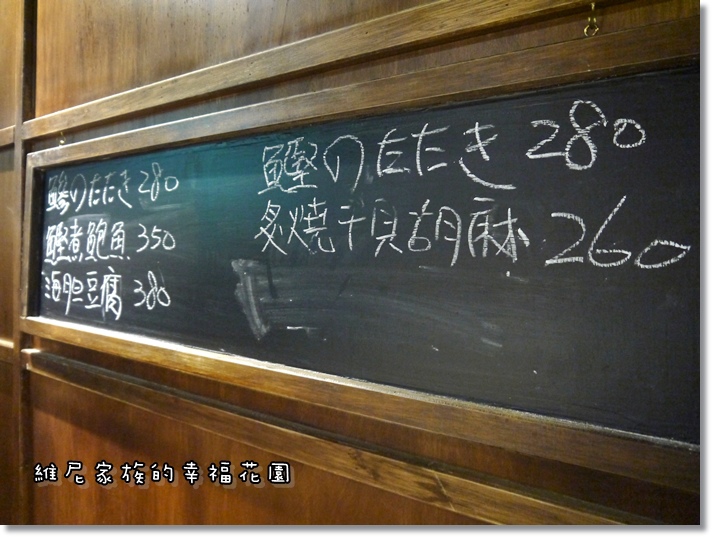 鰺のたたき 280
鰹煮鮑魚 350
海胆豆腐 380
鰹のたたき 280
炙燒干貝胡麻 260
維尼家族的幸福花園